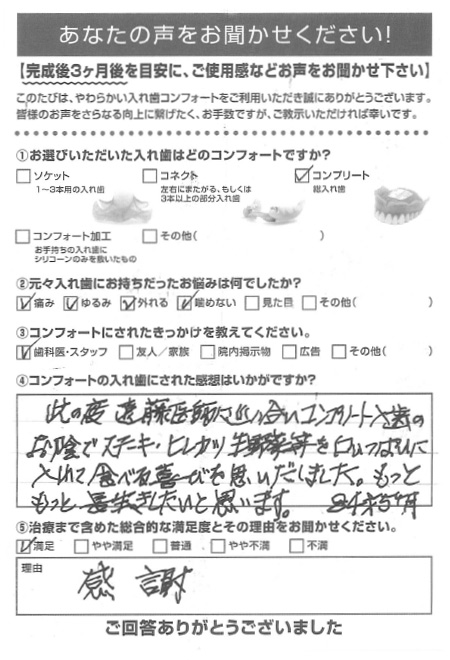 あなたの声をお聞かせください!
【完成後3ヶ月後を目安に、ご使用感などお声をお聞かせ下さい】
このたびは、やわらかい入れ歯コンフォートをご利用いただき誠にありがとうございます。
皆様のお声をさらなる向上に繋げたく、お手数ですが、ご教示いただければ幸いです。
①お選びいただいた入れ歯はどのコンフォートですか?
□ソケット □コネクト ☑コンプリート
1~3本用の入れ歯 左右にまたがる、もしくは 総入れ歯
3本以上の部分入れ歯
□コンフォート加工 □その他( )
お手持ちの入れ歯に
シリコーンのみを敷いたもの
②元々入れ歯にお持ちだったお悩みは何でしたか?
☑痛み ☑ゆるみ ☑外れる ☑噛めない □見た目 □その他( )
③コンフォートにされたきっかけを教えてください。
☑歯科医・スタッフ □友人/家族 □院内掲示物 □広告 □その他( )
④コンフォートの入れ歯にされた感想はいかがですか?
此の度 遠藤医師に巡り合いコンプリート入歯の
お陰でステーキ・ヒレカツ 生野菜等を口いっぱいに
入れて食べる喜びを思いだしました。もっと
もっと長生きしたいと思います。
⑤治療まで含めた総合的な満足度とその理由をお聞かせください。
☑満足 □やや満足 □普通 □やや不満 □不満
理由
感謝
ご回答ありがとうございました